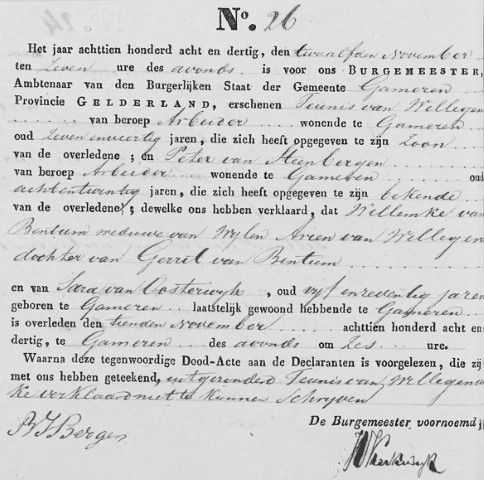 No. 26
Het jaar achttien honderd acht en dertig, den twaalfden November
ten zeven ure des avonds is voor ons BURGEMEESTER,
Ambtenaar van den Burgerlijken Staat der Gemeente Gameren
Provincie GELDERLAND, erschenen Teunis van Willegen
van beroep Arbeider wonende te Gameren
oud zevenenveertig jaren, die zich heeft opgegeven te zijn Zoon
van de overledene; en Peter van Steenbergen
van beroep Arbeider wonende te Gameren oud
achtentwintig jaren, die zich heeft opgegeven te zijn bekende
van de overledene; dewelke ons hebben verklaard, dat Willemke van
Bentum weduwe van Wylen Arien van Willegen
dochter van Gerrit van Bentum
en van Sara van Oosterwyk, oud vyf enzeventig jaren
geboren te Gameren laatstelijk gewoond hebbende te Gameren
is overleden den tienden November achttien honderd acht en
dertig, te Gameren des avonds om zes ure.
Waarna deze tegenwoordige Dood-Acte aan de Declaranten is voorgelezen, die zij
met ons hebben geteekend, uitgezonderd Teunis van Willegen
ke verklaard niet te kunnen Schryven
De Burgemeester voornoemd,